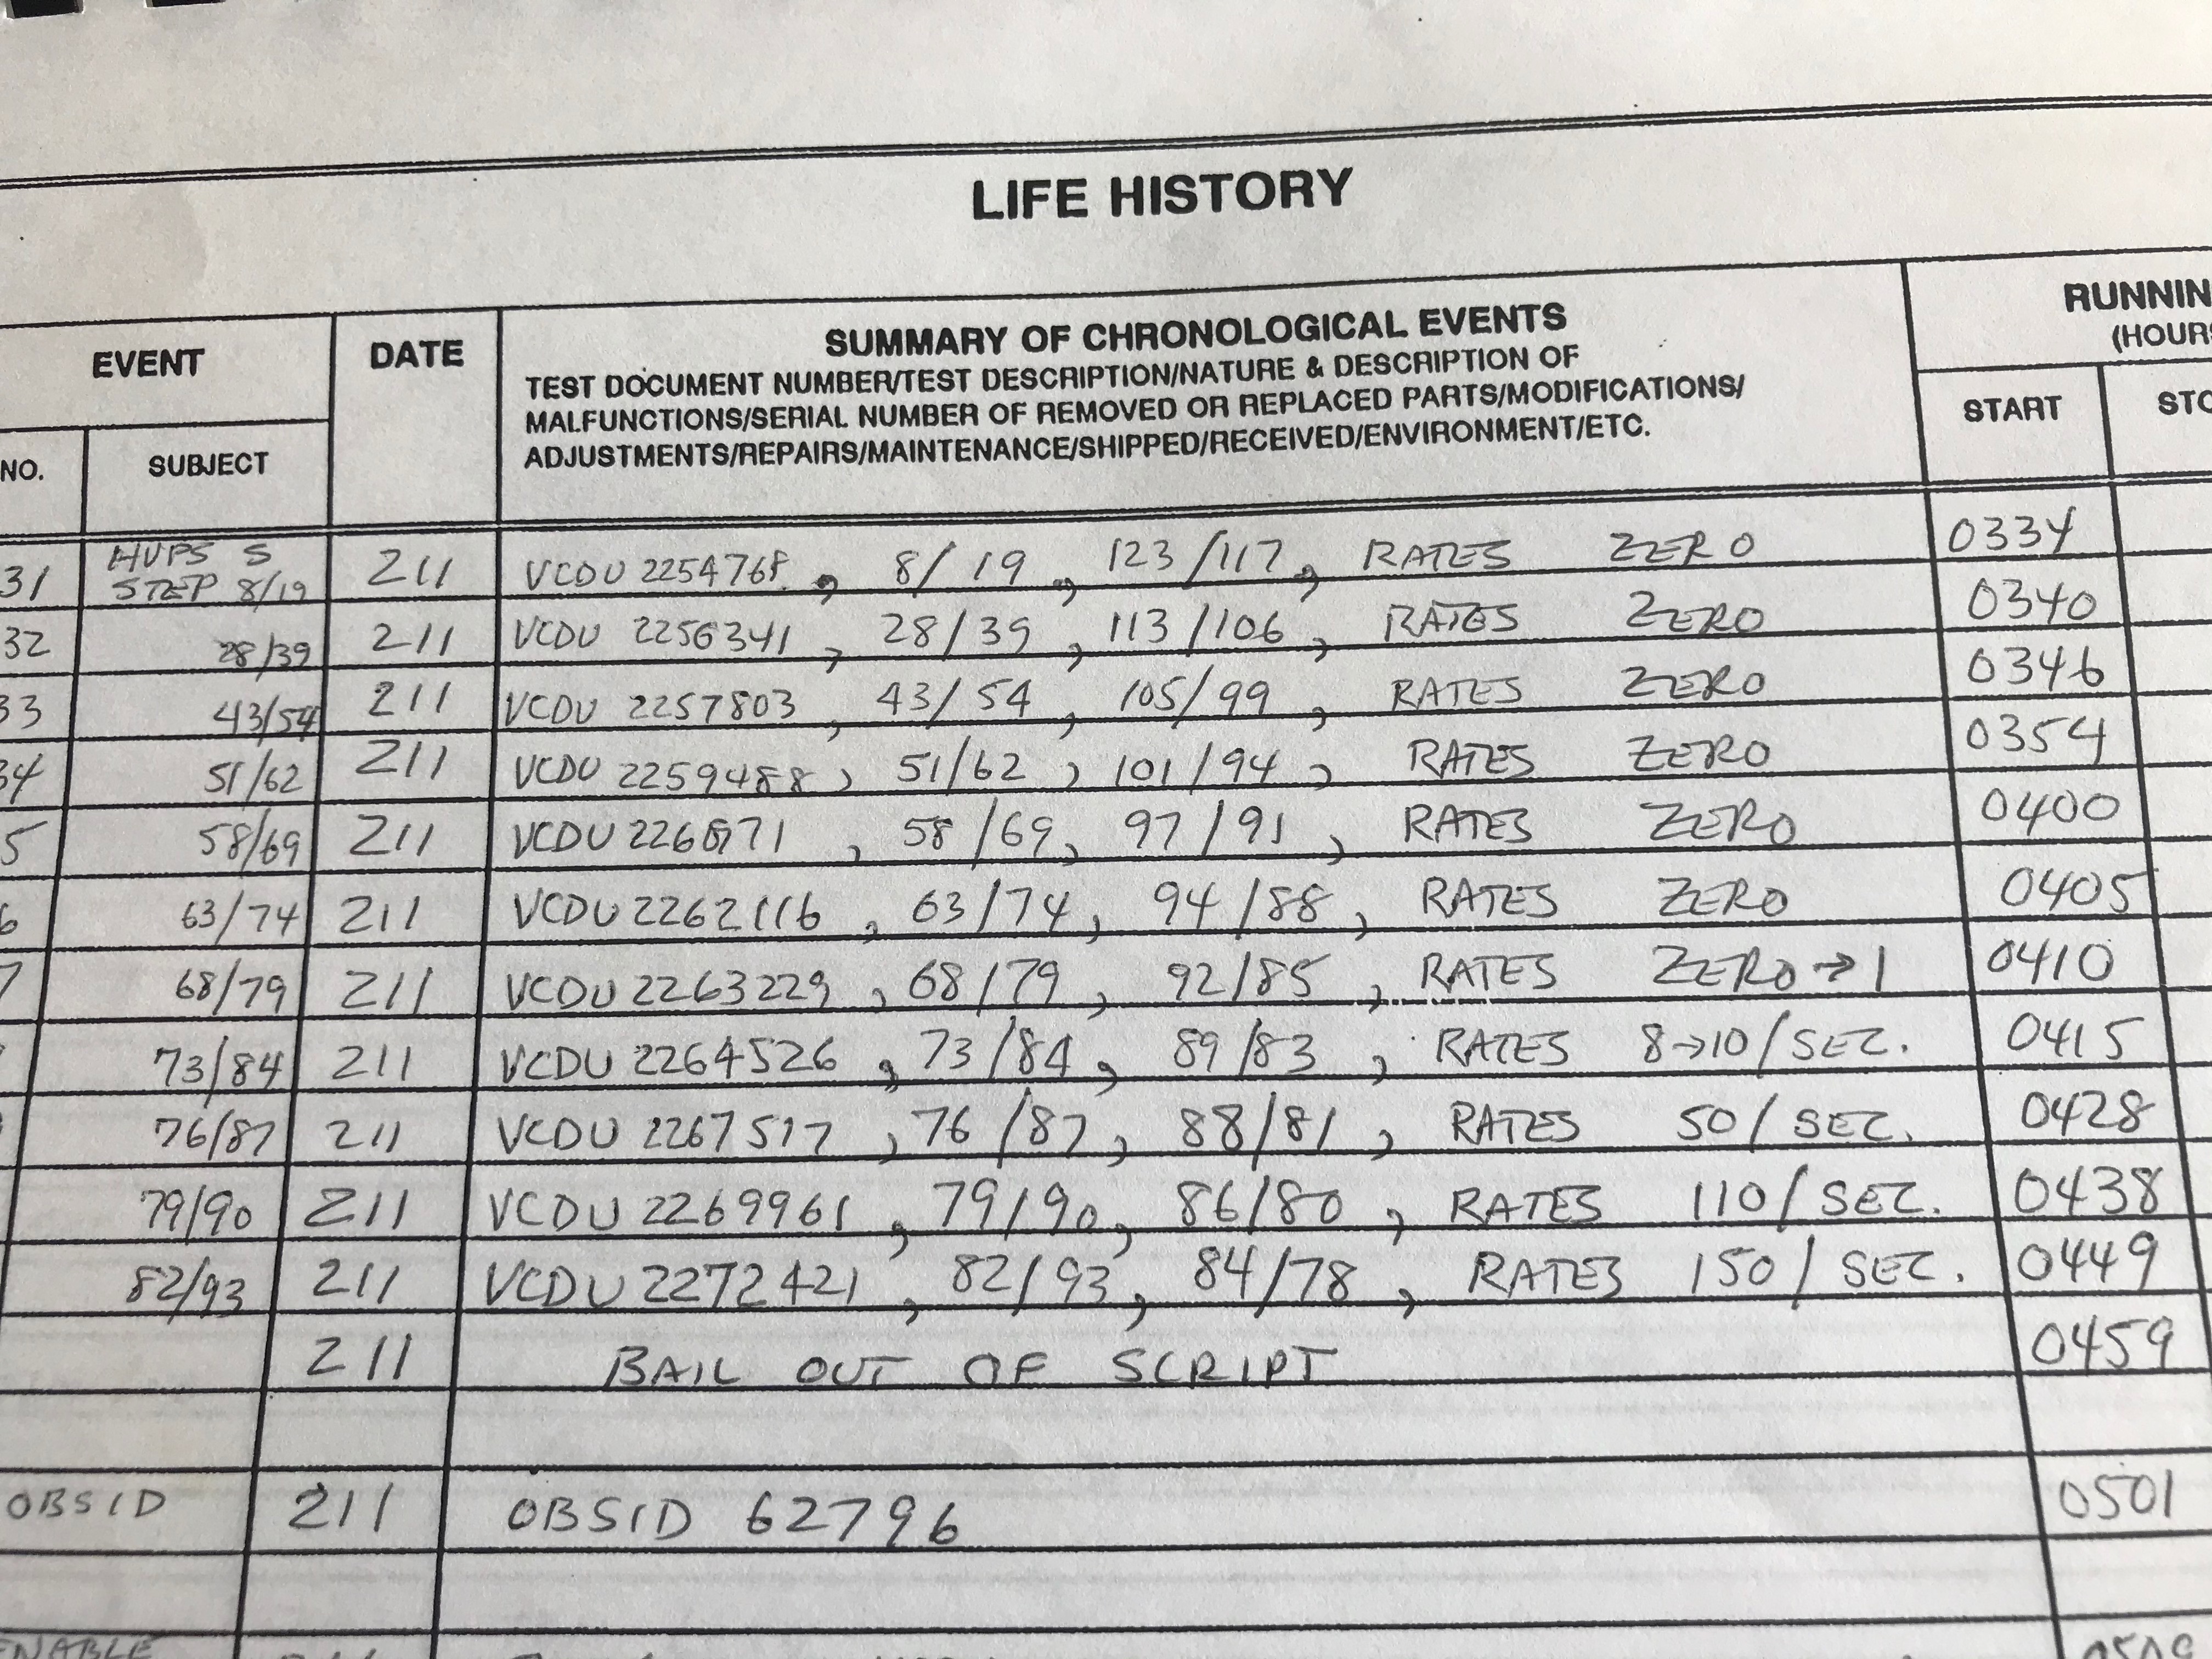 LIFE HISTORY
EVENT DATE SUMMARY OF CHRONOLOGICAL EVENTS RUNNIN
(HOURS
TEST DOCUMENT NUMBER/TEST DESCRIPTION/NATURE & DESCRIPTION OF
MALFUNCTIONS/SERIAL NUMBER OF REMOVED OR REPLACED PARTS/MODIFICATIONS/
ADJUSTMENTS/REPAIRS/MAINTENANCE/SHIPPED/RECEIVED/ENVIRONMENT/ETC.
NO. SUBJECT START STO
HVPS S
31 STEP 8/19 211 VCDU 2254768, 8/19, 123/117, RATES ZERO 0334
32 28/39 211 VCDU 2256341, 28/39, 113/106, RATES ZERO 0340
33 43/54 211 VCDU 2257803, 43/54, 105/99, RATES ZERO 0346
34 51/62 211 VCDU 2259488, 51/62, 101/94, RATES ZERO 0354
5 58/69 211 VCDU , 58/69, 97/91, RATES ZERO 0400
6 63/74 211 VCDU 2262116, 63/74, 94/88, RATES ZERO 0405
7 68/79 211 VCDU 2263229, 68/79, 92/85, RATES ZERO→1 0410
73/84 211 VCDU 2264526, 73/84, 89/83, RATES 8→10/SEC. 0415
76/87 211 VCDU 2267517, 76/87, 88/81, RATES 50/SEC. 0428
79/90 211 VCDU 2269961, 79/90, 86/80, RATES 110/SEC. 0438
82/93 211 VCDU 2272421, 82/93, 84/78, RATES 150/SEC. 0449
211 BAIL OUT OF SCRIPT 0459
OBSID 211 OBSID 62796 0501
ENABLE